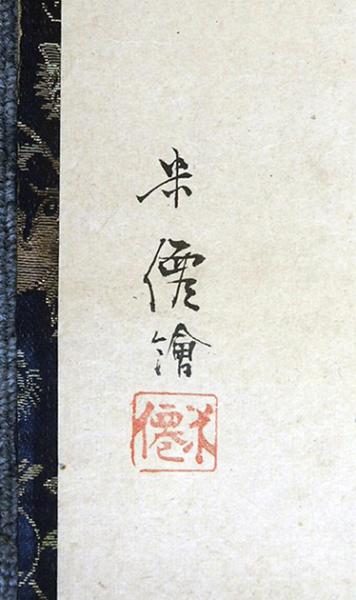 米僊繪
米僊